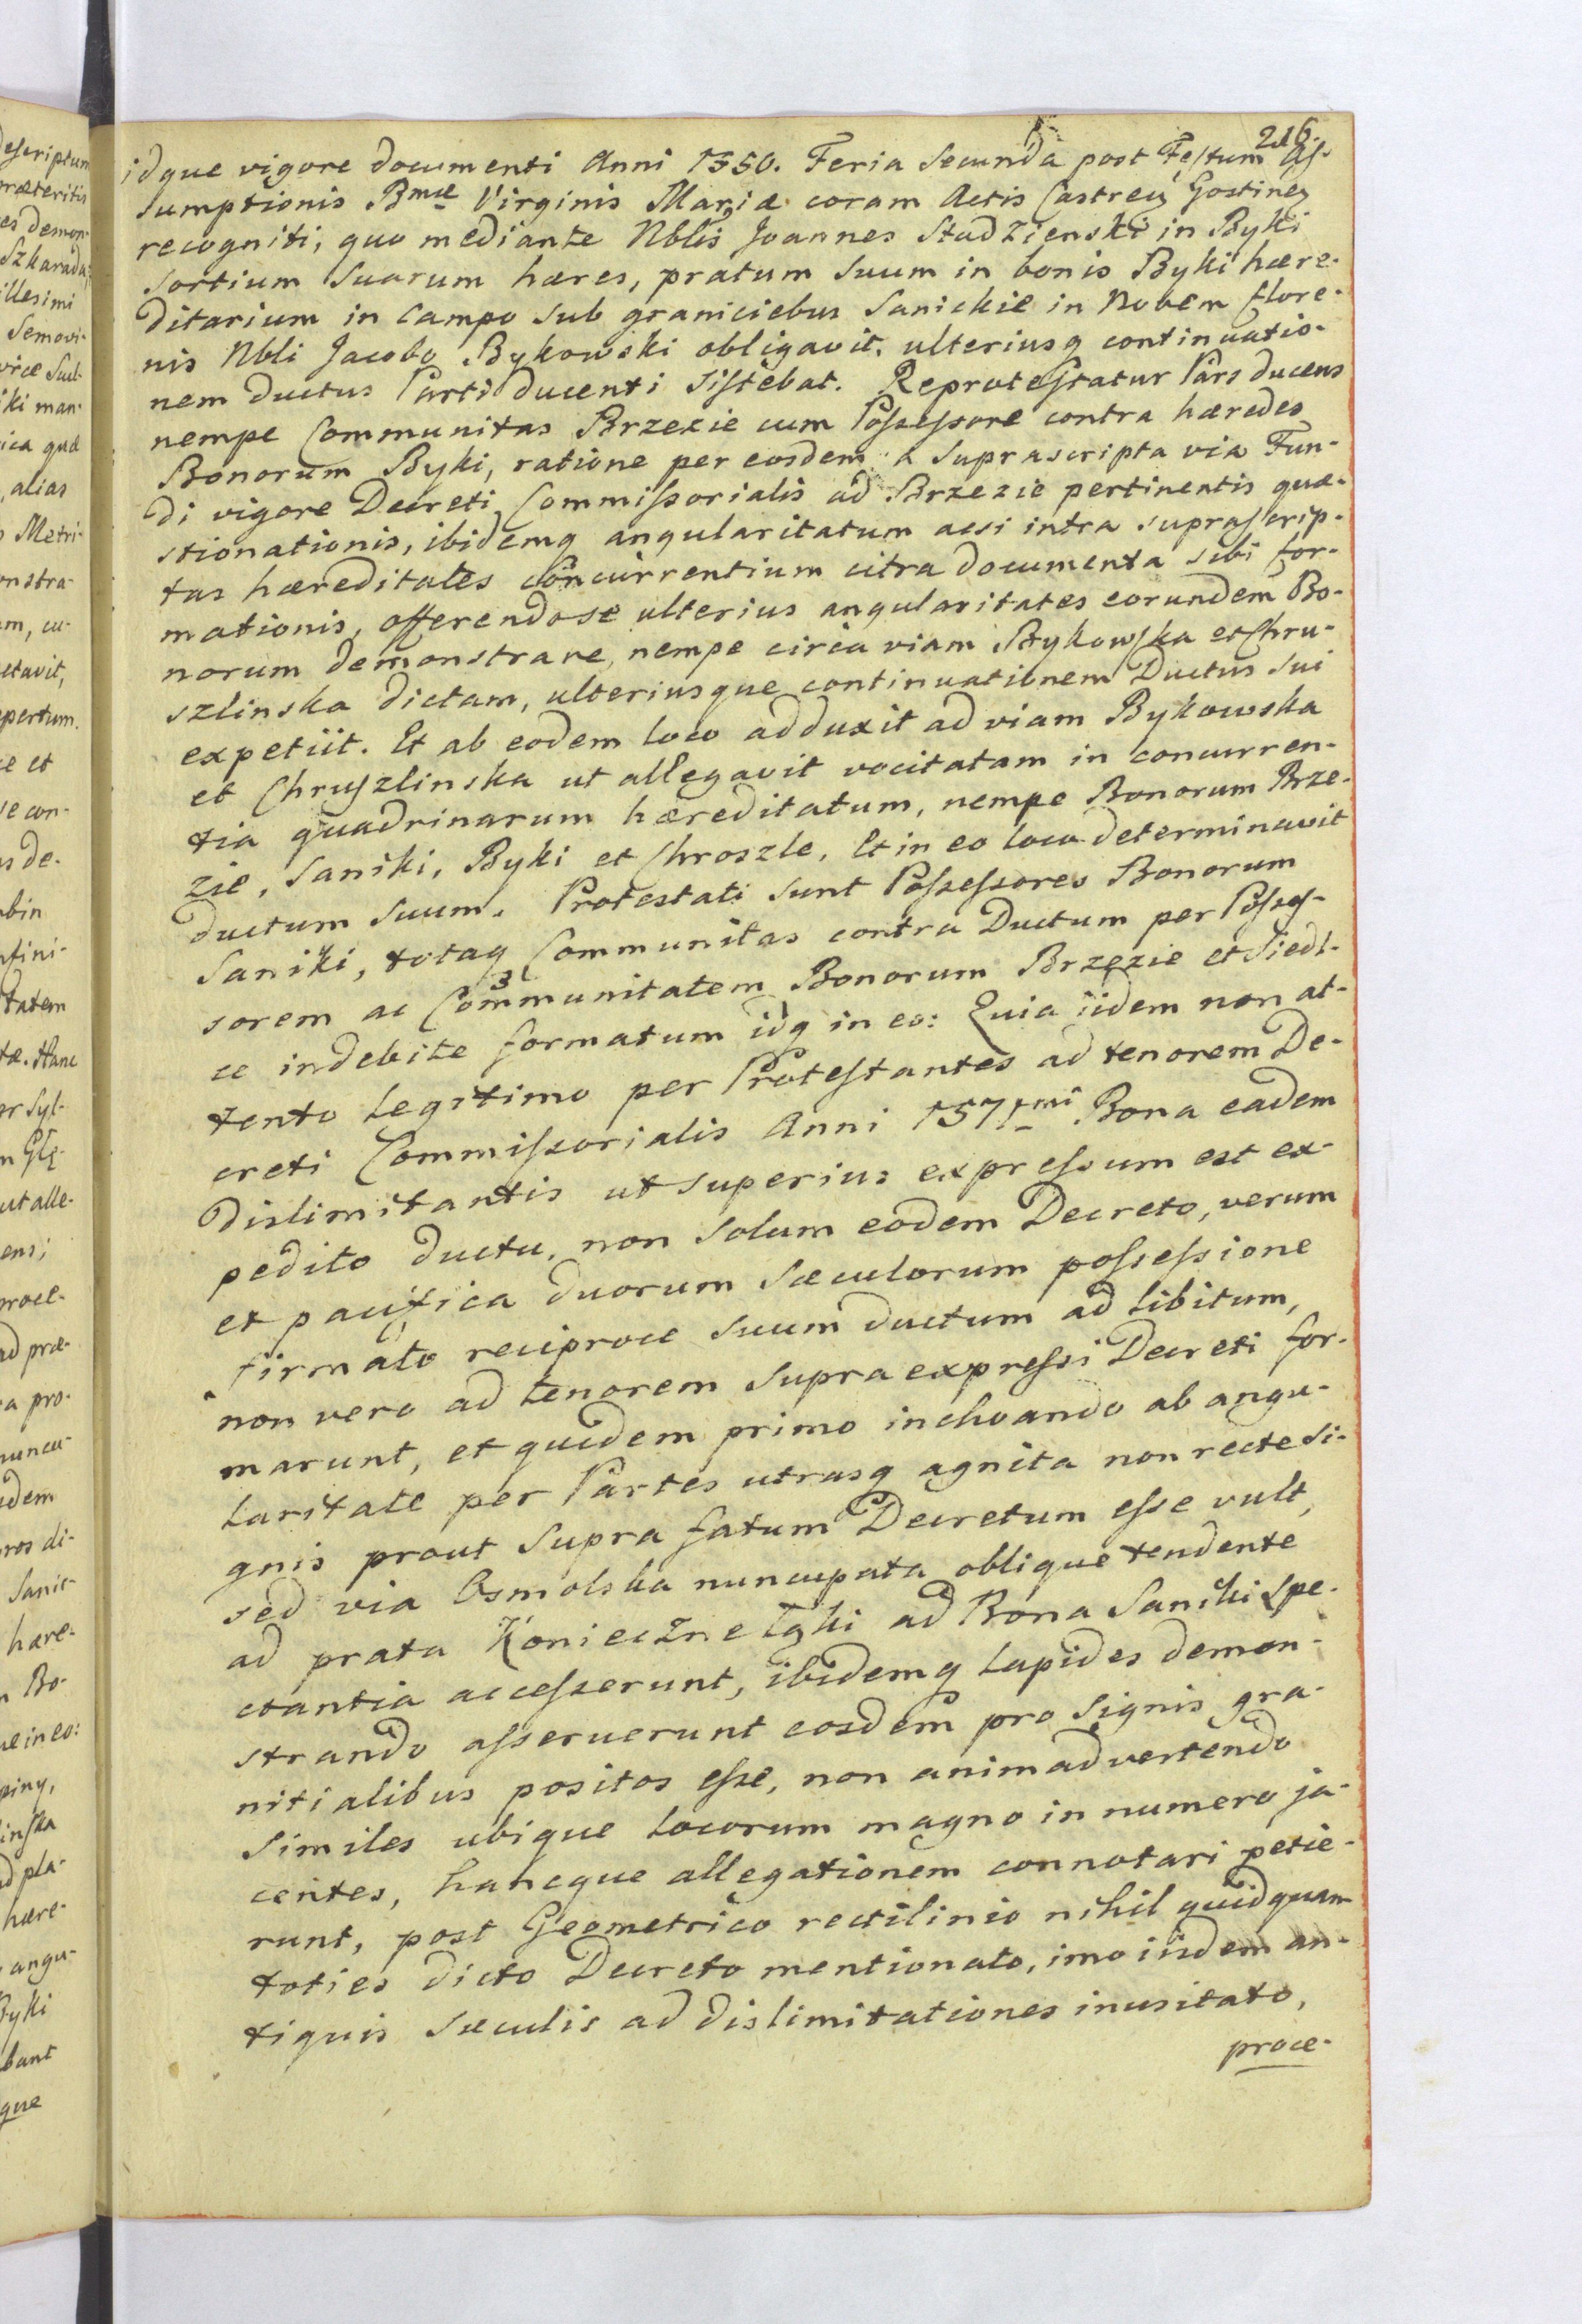 216.
idque vigore documenti Anni 1550. Feria Secunda post Festum As-
sumptionis Bmæ Virginis Mariæ coram Actis Castreñ Gostineñ
recogniti, quo mediante Nblis Joannes Studzienski in Byki
sortium suarum hæres, pratum suum in bonis Byki hære-
ditarium in campo sub graniciebus Sanickie in Novem flore-
nis Nbli Jacobo Bykowski obligavit, ulteriusq continuatio-
nem ductus Parti Ducenti sistebat. Reprotestatur Pars ducens
nempe Communitas Brzezie cum Possessore contra hæredes
Bonorum Byki, ratione per eosdem a supra scripta via Fun-
di vigore Decreti Commissorialis ad Brzezie pertinentis quæ-
stionationis, ibidemq angularitatum acsi intra suprascrip-
tas hæreditates concurrentium citra documenta sibi for-
mationis, offerendo se ulterius angularitates eorundem Bo-
norum demonstrare, nempe circa viam Bykowska et Chru-
szlinska dictam, ulteriusque continuationem Ductus sui
expetiit. Et ab eodem loco adduxit ad viam Bykowska
et Chruszlinska ut allegavit vocitatam in concurren-
tia quadrinarum hæreditatum, nempe Bonorum Brze-
zie, Saniki, Byki et Chroszle, Et in eo loco determinavit
ductum suum. Protestati sunt Possessores Bonorum
Saniki, totaq Communitas contra Ductum per Posses-
sorem ac Communitatem Bonorum Brzezie et Siedl-
ce indebite formatum idq in eo: Quia iidem non at-
tento legitimo per Protestantes ad tenorem De-
creti Commissorialis Anni 1571mi Bona eadem
dislimitantis ut superius expressum est ex-
pedito ductu, non solum eodem Decreto, verum
et pacifica duorum sæculorum possessione
firmato reciproce suum ductum ad libitum,
non vero ad tenorem supra expressi Decreti for-
marunt, et quidem primo inchoando ab angu-
laritate per Partes utrasq agnita non recte si-
gnis prout supra fatum Decretum esse vult,
sed via Osmolska nuncupata oblique tendente
ad prata Koniecznelgki ad Bona Saniki spe-
ctantia accesserunt, ibidemq lapides demon-
strando asseruerunt eosdem pro signis gra-
nitialibus positos esse, non animadvertendo
similes ubique locorum magno in numero ja-
centes, hancque allegationem connotari petie-
runt, post Geometrico rectilinio nihil quidquam
toties dicto Decreto mentionato, imo iisdem an-
tiquis sæculis ad dislimitationes inusitato,
proce-